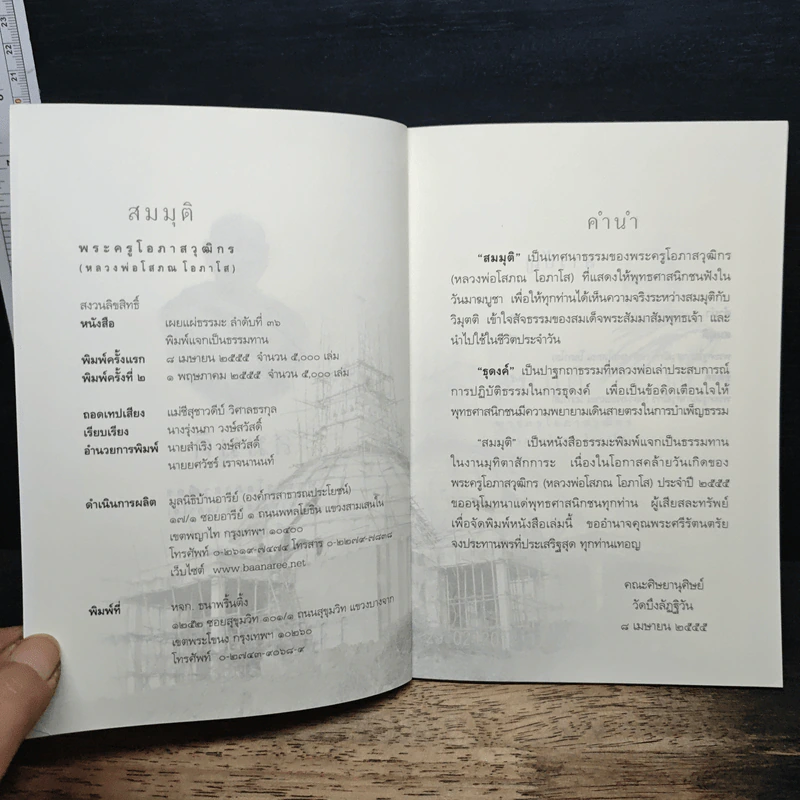 สมมุติ
พระครูโอภาสวุฒิกร
(หลวงพ่อโสภณ โอภาโส)
สงวนลิขสิทธิ์
หนังสือ เผยแผ่ธรรมะ ลำดับที่ ๓๖
พิมพ์แจกเป็นธรรมทาน
พิมพ์ครั้งแรก ๘ เมษายน ๒๕๕๕ จำนวน ๕,๐๐๐ เล่ม
พิมพ์ครั้งที่ ๒ ๑ พฤษภาคม ๒๕๕๕ จำนวน ๕,๐๐๐ เล่ม
ถอดเทปเสียง แม่ชีสุชาวดีป์ วิศาลธรกุล
เรียบเรียง นางรุ่งนภา วงษ์สวัสดิ์
อำนวยการพิมพ์ นายสำเริง วงษ์สวัสดิ์
นายยศวัชร์ เราจนานนท์
ดำเนินการผลิต มูลนิธิบ้านอารีย์ (องค์กรสาธารณประโยชน์)
๑๗/๑ ซอยอารีย์ ๑ ถนนพหลโยธิน แขวงสามเสนใน
เขตพญาไท กรุงเทพฯ ๑๐๔๐๐
โทรศัพท์ ๐-๒๖๑๙-๗๔๗๔ โทรสาร ๐-๒๒๗๙-๗๘๓๘
เว็บไซต์ www.baanaree.net
พิมพ์ที่ หจก. ธนาพริ้นติ้ง
๑๒๕๒ ซอยสุขุมวิท ๑๐๑/๑ ถนนสุขุมวิท แขวงบางจาก
เขตพระโขนง กรุงเทพฯ ๑๐๒๖๐
โทรศัพท์ ๐-๒๗๔๓-๙๐๖๘-๙
คำนำ
"สมมุติ" เป็นเทศนาธรรมของพระครูโอภาสวุฒิกร
(หลวงพ่อโสภณ โอภาโส) ที่แสดงให้พุทธศาสนิกชนฟังใน
วันมาฆบูชา เพื่อให้ทุกท่านได้เห็นความจริงระหว่างสมมุติกับ
วิมุตติ เข้าใจสัจธรรมของสมเด็จพระสัมมาสัมพุทธเจ้า และ
นำไปใช้ในชีวิตประจำวัน
"ธุดงค์" เป็นปาฐกถาธรรมที่หลวงพ่อเล่าประสบการณ์
การปฏิบัติธรรมในการธุดงค์ เพื่อเป็นข้อคิดเตือนใจให้
พุทธศาสนิกชนมีความพยายามเดินสายตรงในการบำเพ็ญธรรม
"สมมุติ" เป็นหนังสือธรรมะพิมพ์แจกเป็นธรรมทาน
ในงานมุทิตาสักการะ เนื่องในโอกาสคล้ายวันเกิดของ
พระครูโอภาสวุฒิกร (หลวงพ่อโสภณ โอภาโส) ประจำปี ๒๕๕๕
ขออนุโมทนาแด่พุทธศาสนิกชนทุกท่าน ผู้เสียสละทรัพย์
เพื่อจัดพิมพ์หนังสือเล่มนี้ ขออำนาจคุณพระศรีรัตนตรัย
จงประทานพรที่ประเสริฐสุด ทุกท่านเทอญ
คณะศิษยานุศิษย์
วัดบึงลัฏฐิวัน
๘ เมษายน ๒๕๕๕